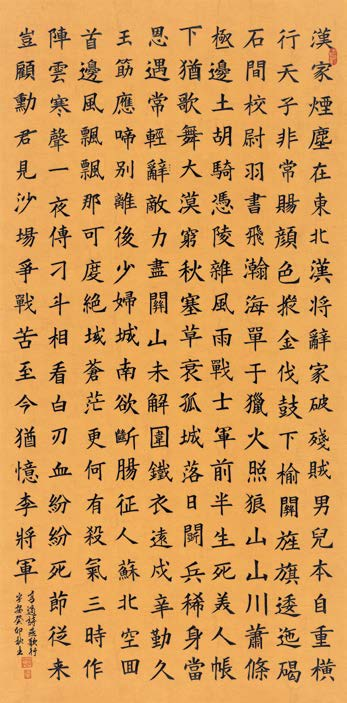 漢家煙塵在東北漢將辭家破殘賊男兒本自重橫
行天子非常賜顏色摐金伐鼓下榆關旌旗逶迤碣
石間校尉羽書飛瀚海單于獵火照狼山山川蕭條
極邊土胡騎憑陵雜風雨戰士軍前半生死美人帳
下猶歌舞大漠窮秋塞草衰孤城落日鬭兵稀身當
恩遇常輕辭敵力盡關山未解圍鐵衣遠戍辛勤久
玉筋應啼別離後少婦城南欲斷腸征人蘇北空回
首邊風飄飄那可度絕域蒼茫更何有殺氣三時作
陣雲寒聲一夜傳刁斗相看白刃血紛紛死節從來
豈顧勳君見沙場爭戰苦至今猶憶李將軍
高適詩燕歌行
癸卯秋